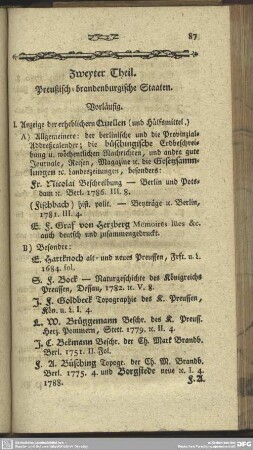 87
Zweyter Theil.
Preußisch-brandenburgische Staaten.
Vorläufig.
I. Anzeige der erheblichern Quellen (und Hülfsmittel.)
A) Allgemeinere: der berlinische und die Provinzial-
Addreßcalender; die büschingische Erdbeschrei-
bung u. wöchentlichen Nachrichten, und andre gute
Journale, Reisen, Magazine ꝛc. die Gesetzsamm-
lungen ꝛc. Landeszeitungen, besonders:
Fr. Nicolai Beschreibung — Berlin und Pots-
dam ꝛc. Berl. 1786. III. 8.
(Fischbach) hist. polit. — Beyträge ꝛc. Berlin,
1781. III. 4.
E. F. Graf von Herzberg Memoirs &c.
auch deutsch und zusammengedruckt.
B) Besondre:
E. Hartknoch alt- und neues Preussen, Frft. u. L.
1684. fol.
S. F. Bock — Naturgeschichte des Königreichs
Preussen, Dessau, 1782. ꝛc. V. 8.
J. F. Goldbeck Topographie des K. Preussen,
Kön. u. L. 4.
L. W. Brüggemann Beschr. des K. Preuss.
Herz. Pommern, Stett. 1779. ꝛc. II. 4.
J. C. Bekmann Beschr. der Ch. Mark Brandb.
Berl. 1751. II. Fol.
F. A. Büsching Topogr. der Ch. M. Brandb.
Berl. 1775. 4. und Borgstede neue ꝛc. I. 4.
1788.
F. A.